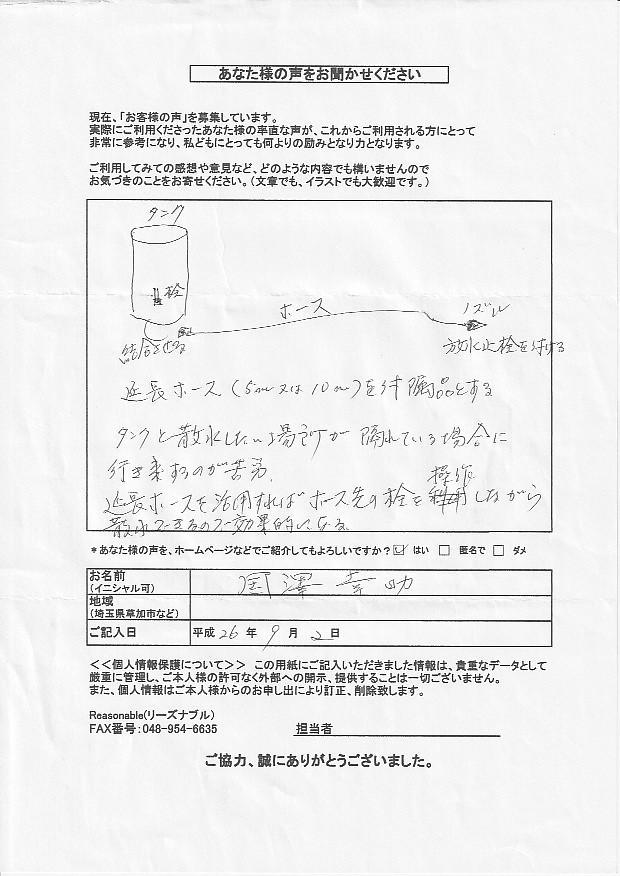 あなた様の声をお聞かせください
現在、「お客様の声」を募集しています。
実際にご利用くださったあなた様の率直な声が、これからご利用される方にとって
非常に参考になり、私どもにとっても何よりの励みとなり力となります。
ご利用してみての感想や意見など、どのような内容でも構いませんので
お気づきのことをお寄せください。(文章でも、イラストでも大歓迎です。)
タンク
栓
ホース
ノズル
結合させる
放水止栓を付ける
延長ホース(5m又は10m)を付属品とする
タンクと散水したい場所が隔れている場合に
行き来するのが苦労
延長ホースを活用すればホース先の栓を操作しながら
散水できるので効果的になる
*あなた様の声を、ホームページなどでご紹介してもよろしいですか? ☑ はい □ 匿名で □ ダメ
お名前
(イニシャル可)
澤幸助
地域
(埼玉県草加市など)
ご記入日 平成26年9月2日
<<個人情報保護について>> この用紙にご記入いただきました情報は、貴重なデータとして
厳重に管理し、ご本人様の許可なく外部への開示、提供することは一切ございません。
また、個人情報はご本人様からのお申し出により訂正、削除致します。
Reasonable(リーズナブル)
FAX番号:048-954-6635 担当者
ご協力、誠にありがとうございました。